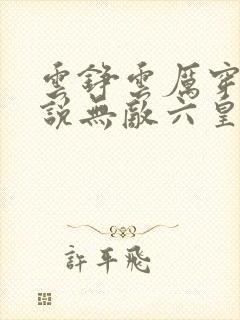 雲錚雲厲穿
說無敵六皇
許平飛